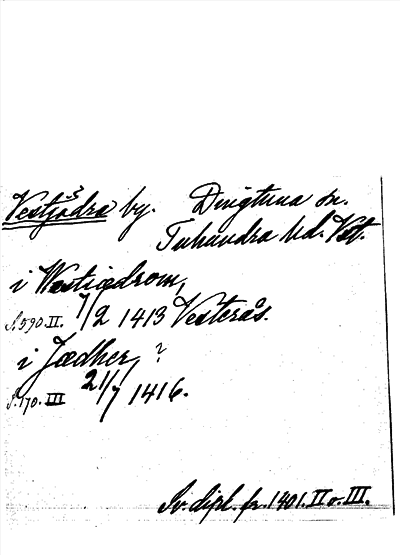 Vestjädra by. Dingtuna sn.
Tuhundra hd. Vst.
i Westiædrom,
S. 590. II. 7/2 1413 Vesterås.
i Jædher, ?
S. 170. III 21/7 1416.
Sv. dipl. fr. 1401. II o. III.